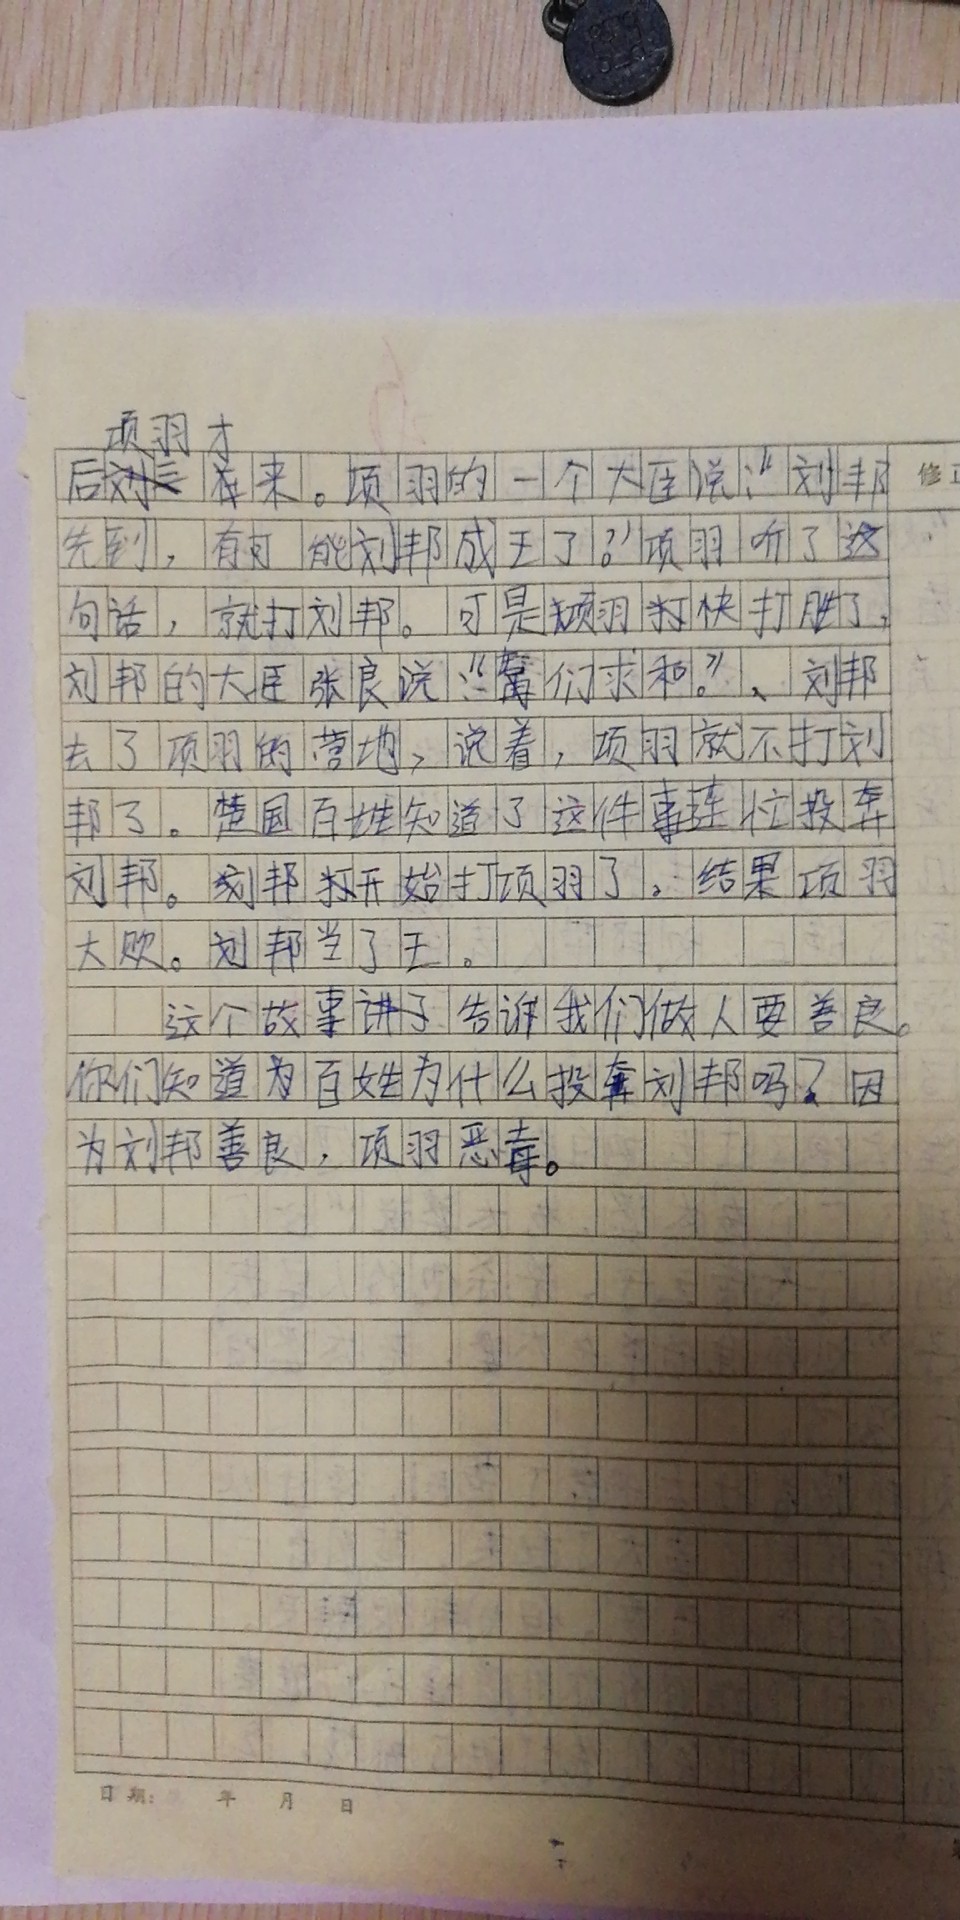 项羽才
后来。项羽的一个大臣说:“刘邦
先到，有可能刘邦成王了?”项羽听了这
句话，就打刘邦。可是项羽快打胜了，
刘邦的大臣张良说:“我们求和。”、刘邦
去了项羽的营地，说着，项羽就不打刘
邦了。楚国百姓知道了这件事连忙投奔
刘邦。刘邦开始打项羽了。结果项羽
大败。刘邦当了王。
这个故事讲了告诉我们做人要善良。
你们知道为百姓为什么投奔刘邦吗?因
为刘邦善良，项羽恶毒。
修正
日期: 年 月 日